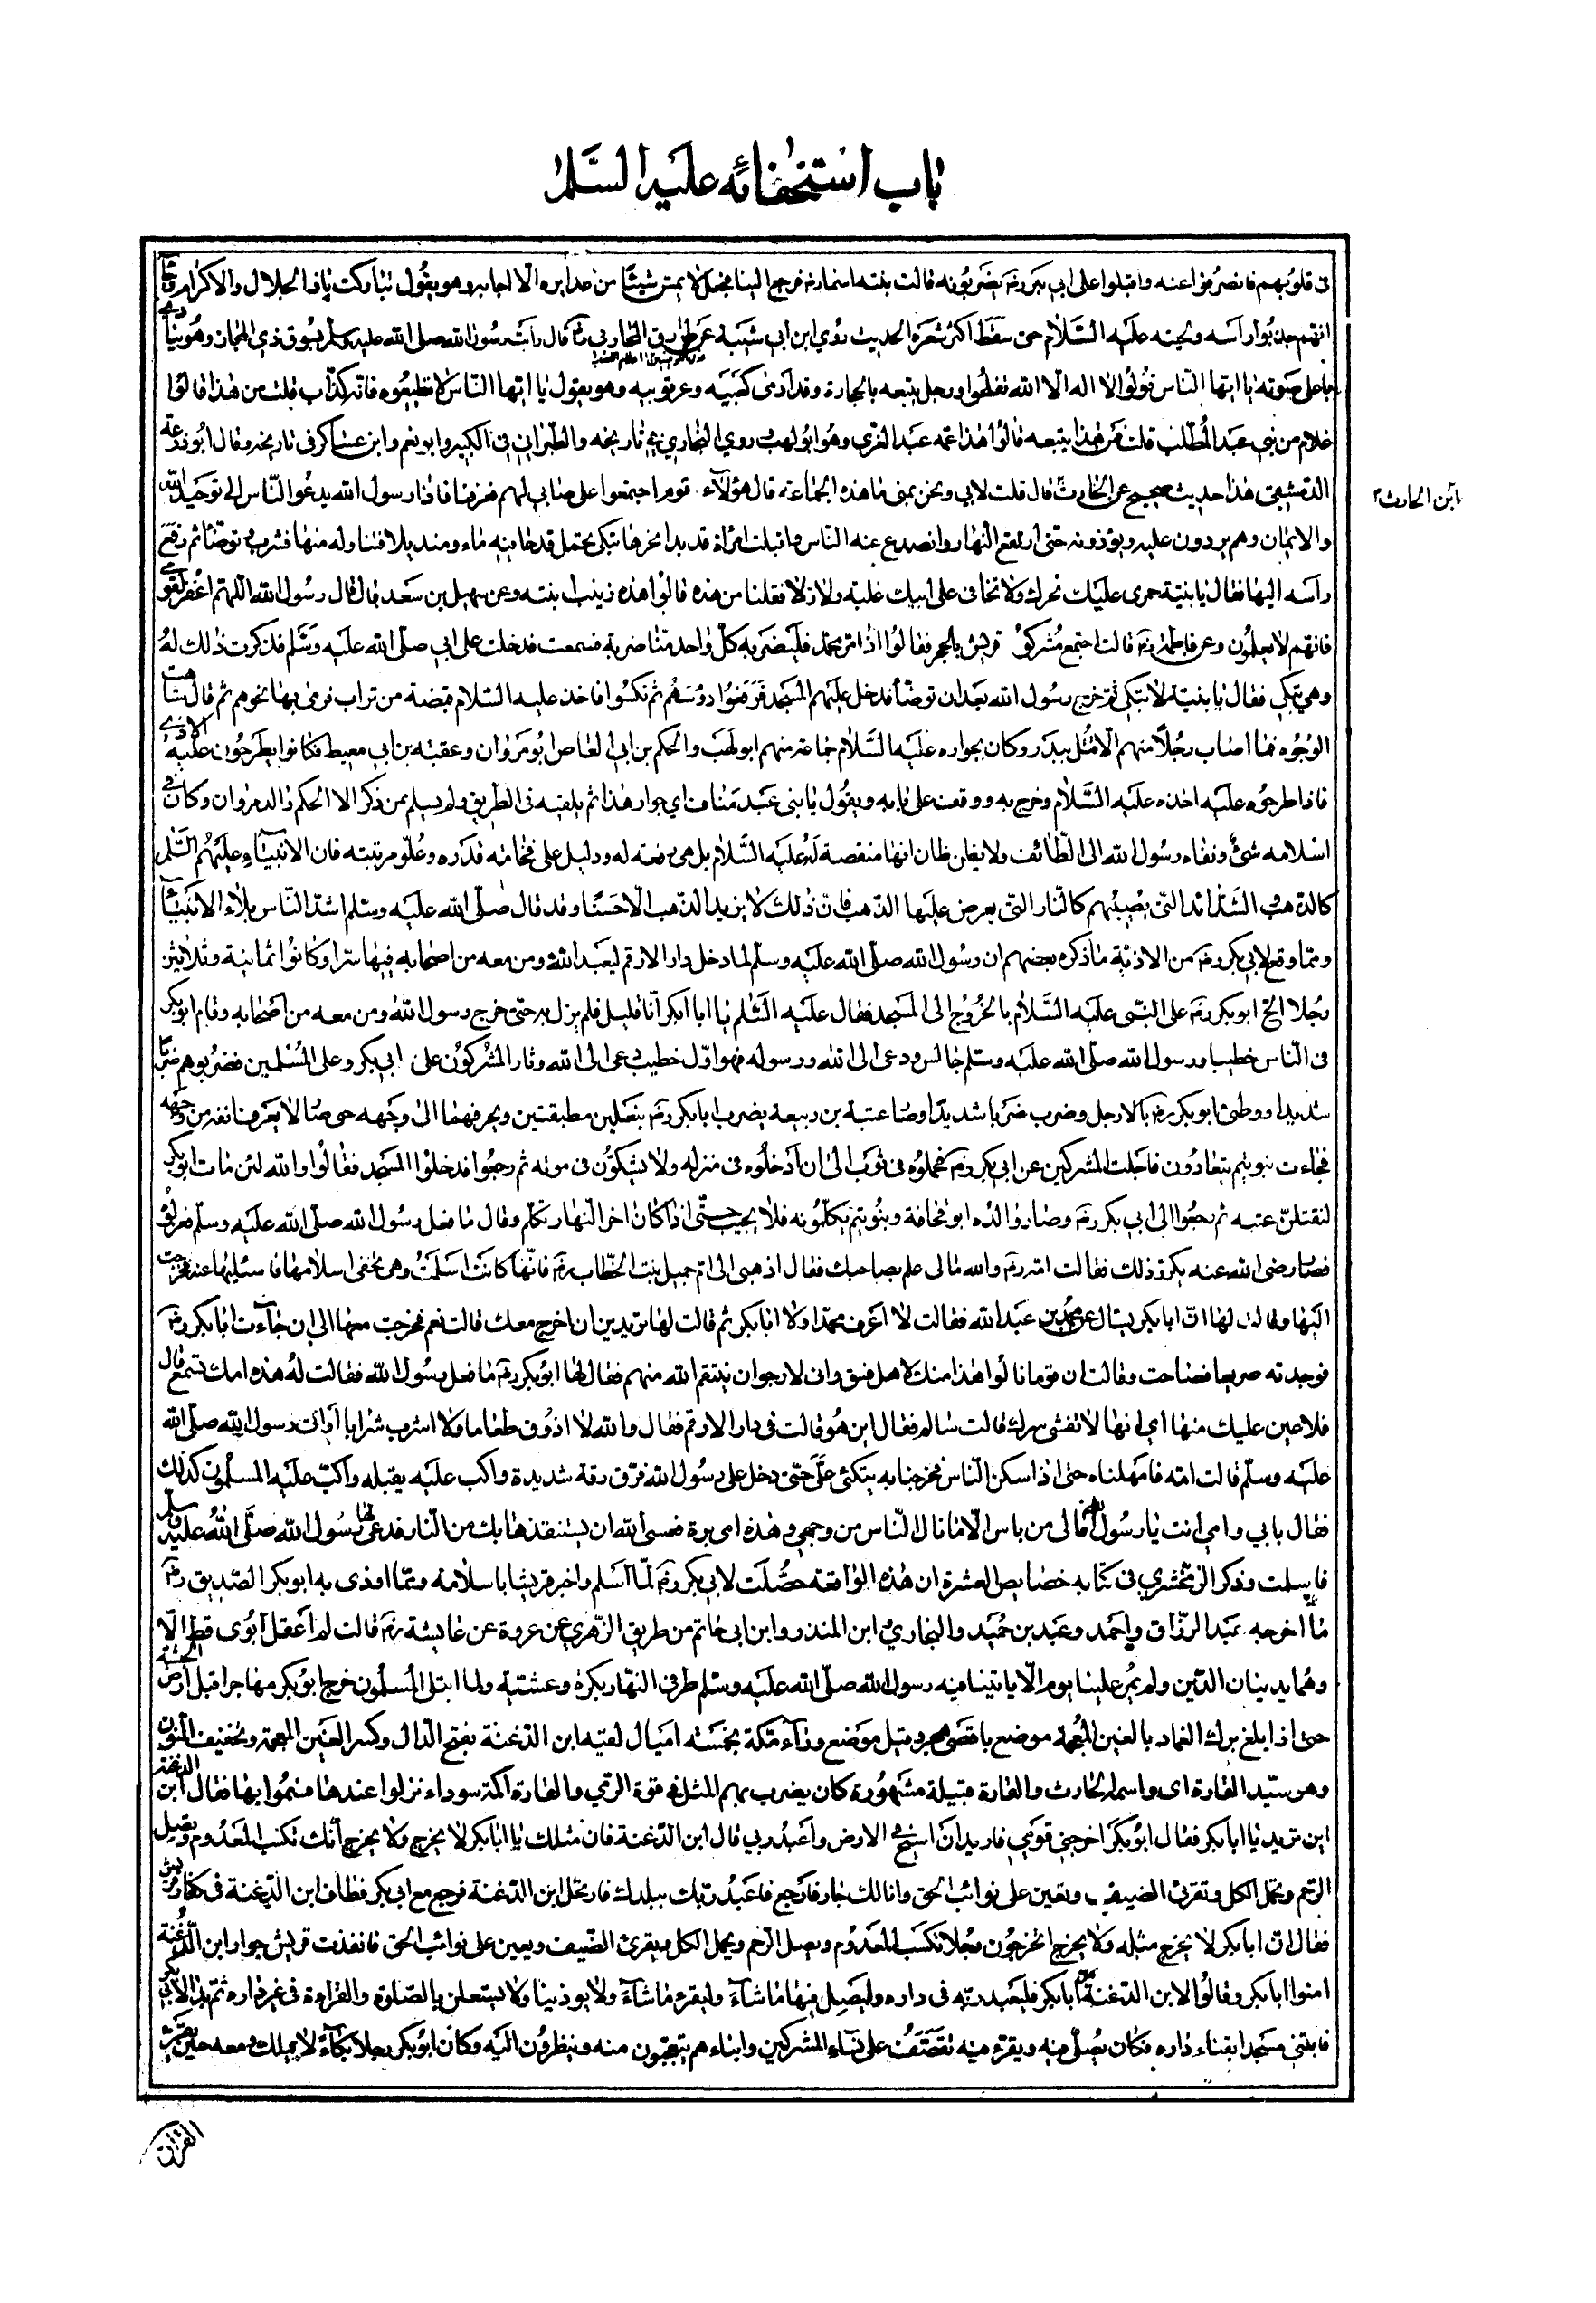 باب استخفائه عليه السلم
فى قلوبهم فانصرفوا عنه واقبلوا على ابى بكر رضم يضربونه قالت بنته اسماء رضم فرجع الينا فجعل لا يمس شيئا من غدايره الا اجابه وهو يقول تباركت ياذا الجلال والاكرام وجاء
انهم جذبوا راسه ولحيته عليه السلام حتى سقط اكثر شعره الحديث روي ابن ابى شيبة عن طارق المحاربي رضم قال رأيت رسول الله صلى الله عليه وسلم بسوق ذي المجاز وهو ينادي
باعلى صوته يا ايها الناس قولوا لا اله الا الله تفلحوا ورجل يتبعه بالحجارة وقد ادمى كعبيه وعرقوبيه وهو يقول يا ايها الناس لا تطيعوه فانه كذاب قلت من هذا قالوا
غلام من بنى عبد المطلب قلت فمن هذا يتبعه قالوا هذا عمه عبد العزى وهو ابو لهب روي البخاري في تاريخه والطبراني في الكبير وابو نعيم وابن عساكر فى تاريخه وقال ابو زرعة
الدمشقى هذا حديث صحيح عن الحارث قال قلت لابي ونحن بمنى ما هذه الجماعة قال هؤلاء قوم اجتمعوا على صابي لهم فنزلنا فاذا رسول الله يدعو الناس الى توحيد الله
ابن الحارث
والايمان وهم يردون عليه ويؤذونه حتى ارتفع النهار وانصدع عنه الناس واقبلت امراة قد بدا نحرها تبكي تحمل قدحا فيه ماء ومنديلا فتناوله منها فشرب وتوضأ ثم رفع
رأسه اليها فقال يا بنية خمري عليك نحرك ولا تخافى على ابيك غلبة ولا ذلا فقلنا من هذه قالوا هذه زينب بنته وعن سهيل بن سعد قال قال رسول الله اللهم اغفر لقومى
فانهم لا يعلمون وعن فاطمة رضم قالت اجتمع مشركو قريش بالحجر فقالوا اذا مر محمد فليضربه كل واحد منا ضربة فسمعت فدخلت على ابي صلى الله عليه وسلم فذكرت ذلك له
وهي تبكي فقال يا بنية لا تبكي ثم خرج رسول الله بعد ان توضأ فدخل عليهم المسجد فرفعوا رؤسهم ثم نكسوا فاخذ عليه السلام قبضة من تراب فرمى بها نحوهم ثم قال شاهت
الوجوه فما اصاب رجلا منهم الا قتل ببدر وكان بجواره عليه السلام جماعة منهم ابو لهب والحكم بن ابي العاص ابو مروان وعقبة بن ابي معيط فكانوا يطرحون عليه الاذى
فاذا طرحوه عليه اخذه عليه السلام وخرج به ووقف على بابه ويقول يا بنى عبد مناف اي جوار هذا ثم يلقيه فى الطريق ولم يسلم ممن ذكر الا الحكم والد مروان وكان في
اسلامه شئ ونفاه رسول الله الى الطائف ولا يظن ظان انها منقصة له عليه السلام بل هي رفعة له ودليل على فخامة قدره وعلو مرتبته فان الانبياء عليهم السلم
كالذهب الشدائد التى تصيبهم كالنار التى يعرض عليها الذهب فان ذلك لا يزيد الذهب الا حسنا وقد قال صلى الله عليه وسلم اشد الناس بلاء الانبياء
ومما وقع لابي بكر رضم من الاذية ما ذكره بعضهم ان رسول الله صلى الله عليه وسلم لما دخل دار الارقم ليعبد الله ومن معه من اصحابه فيها سرا وكانوا ثمانية وثلاثين
رجلا الح ابو بكر رضم على النبى عليه السلام بالخروج الى المسجد فقال عليه السلم يا ابا بكر انا قليل فلم يزل به حتى خرج رسول الله ومن معه من اصحابه وقام ابو بكر
فى الناس خطيبا ورسول الله صلى الله عليه وسلم جالس ودعى الى الله ورسوله فهو اول خطيب دعى الى الله وثار المشركون على ابي بكر وعلى المسلمين فضربوهم ضربا
شديدا ووطئ ابو بكر رضم بالارجل وضرب ضربا شديدا وصار عتبة بن ربيعة يضرب ابا بكر رضم بنعلين مطبقتين ويحرفهما الى وجهه حتى صار لا يعرف انفه من وجهه
فجاءت بنو تيم يتعادون فاجلت المشركين عن ابي بكر رضم فحملوه فى ثوب الى ان ادخلوه فى منزله ولا يشكون فى موته ثم رجعوا فدخلوا المسجد فقالوا والله لئن مات ابو بكر
لنقتلن عتبه ثم رجعوا الى ابي بكر رضم وصار والده ابو قحافة وبنو تيم يكلمونه فلا يجيب حتى اذا كان اخر النهار تكلم وقال ما فعل رسول الله صلى الله عليه وسلم فعزلوه
فصار رضى الله عنه يكرر ذلك فقالت امه رضم والله ما لى علم بصاحبك فقال اذهبى الى ام جميل بنت الخطاب رضم فانها كانت اسلمت وهى تخفى اسلامها فاسئليها عنه فخرجت
اليها وقالت لها ان ابا بكر يسال عن محمد بن عبد الله فقالت لا اعرف محمدا ولا ابا بكر ثم قالت لها تريدين ان اخرج معك قالت نعم فخرجت معها الى ان جاءت ابا بكر رضم
فوجدته صريعا فصاحت وقالت ان قوما نالوا هذا منك لاهل فسق وانى لارجو ان ينتقم الله منهم فقال لها ابو بكر رضم ما فعل رسول الله فقالت له هذه امك تسمع قال
فلا عين عليك منها اي انها لا تفشى سرك قالت سالم فقال اين هو قالت فى دار الارقم فقال والله لا اذوق طعاما ولا اشرب شرابا او اتى رسول الله صلى الله
عليه وسلم قالت امه فامهلناه حتى اذا سكن الناس فخرجنا به يتكئى على حتى دخل على رسول الله فرق رقة شديدة واكب عليه يقبله واكب عليه المسلمون كذلك
فقال بابي وامي انت يا رسول الله ما لى من باس الا ما نال الناس من وجهى وهذه امى برة فعسى الله ان يستنقذها بك من النار فدعى لها رسول الله صلى الله عليه وسلم
فاسلمت وذكر الزمخشري فى كتابه خصايص العشرة ان هذه الواقعة حصلت لابي بكر رضم لما اسلم واخبر قريشا باسلامه ومما اوذى به ابو بكر الصديق رضم
ما اخرجه عبد الرزاق واحمد وعبد بن حميد والبخاري وابن المنذر وابن ابى حاتم من طريق الزهري عن عروة عن عايشة رضم قالت لم اعقل ابوى قط الا
وهما يدينان الدين ولم يمر علينا يوم الا ياتينا فيه رسول الله صلى الله عليه وسلم طرفى النهار بكرة وعشية ولما ابتلى المسلمون خرج ابو بكر مهاجرا قبل ارض الحبشة
حتى اذا بلغ برك الغماد بالغين المعجمة موضع باقصى هجر وقيل موضع وراء مكة بخمسة اميال لقيه ابن الدغنة بفتح الدال وكسر الغين المعجمة وتخفيف النون
وهو سيد القارة اى واسمه الحارث والقارة قبيلة مشهورة كان يضرب بهم المثل في قوة الرمي والقارة اكمة سوداء نزلوا عندها فسموا بها فقال ابن الدغنة
اين تريد يا ابا بكر فقال ابو بكر اخرجني قومي فاريد ان اسيح في الارض واعبد ربي قال ابن الدغنة فان مثلك يا ابا بكر لا يخرج ولا يخرج انك تكسب المعدوم وتصل
الرحم وتحمل الكل وتقرئ الضيف وتعين على نوائب الحق وانا لك جار فارجع فاعبد ربك ببلدك فارتحل ابن الدغنة فرجع مع ابي بكر فطاف ابن الدغنة فى كفار قريش
فقال ان ابا بكر لا يخرج مثله ولا يخرج اتخرجون رجلا تكسب المعدوم ويصل الرحم ويحمل الكل ويقرئ الضيف ويعين على نوائب الحق فانفذت قريش جوار ابن الدغنة
امنوا ابا بكر وقالوا لابن الدغنة مر ابا بكر فليعبد ربه فى داره وليصل فيها ما شاء وليقرء ما شاء ولا يوذينا ولا يستعلن بالصلوة والقراءة فى غير داره ثم بدا لابي بكر
فابتنى مسجدا بفناء داره فكان يصلى فيه ويقرء فيه فتقصف على نساء المشركين وابناءهم يتعجبون منه وينظرون اليه وكان ابو بكر رجلا بكاء لا يملك دمعه حين يقرء
القران